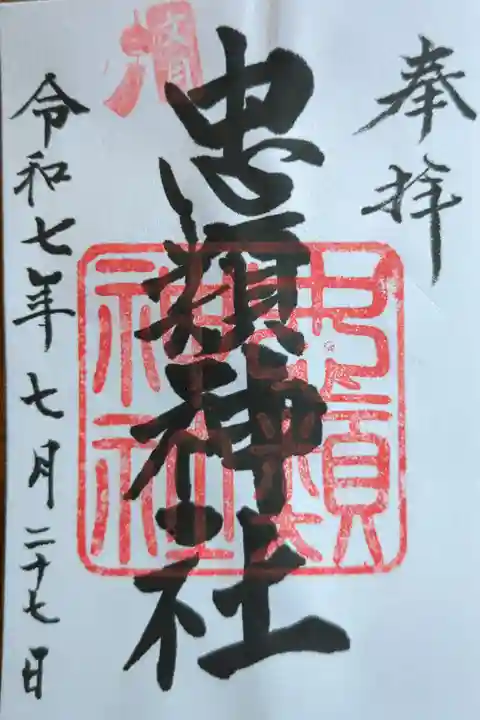 奉拝
忠類神社
忠類神社
令和七年七月二十七日